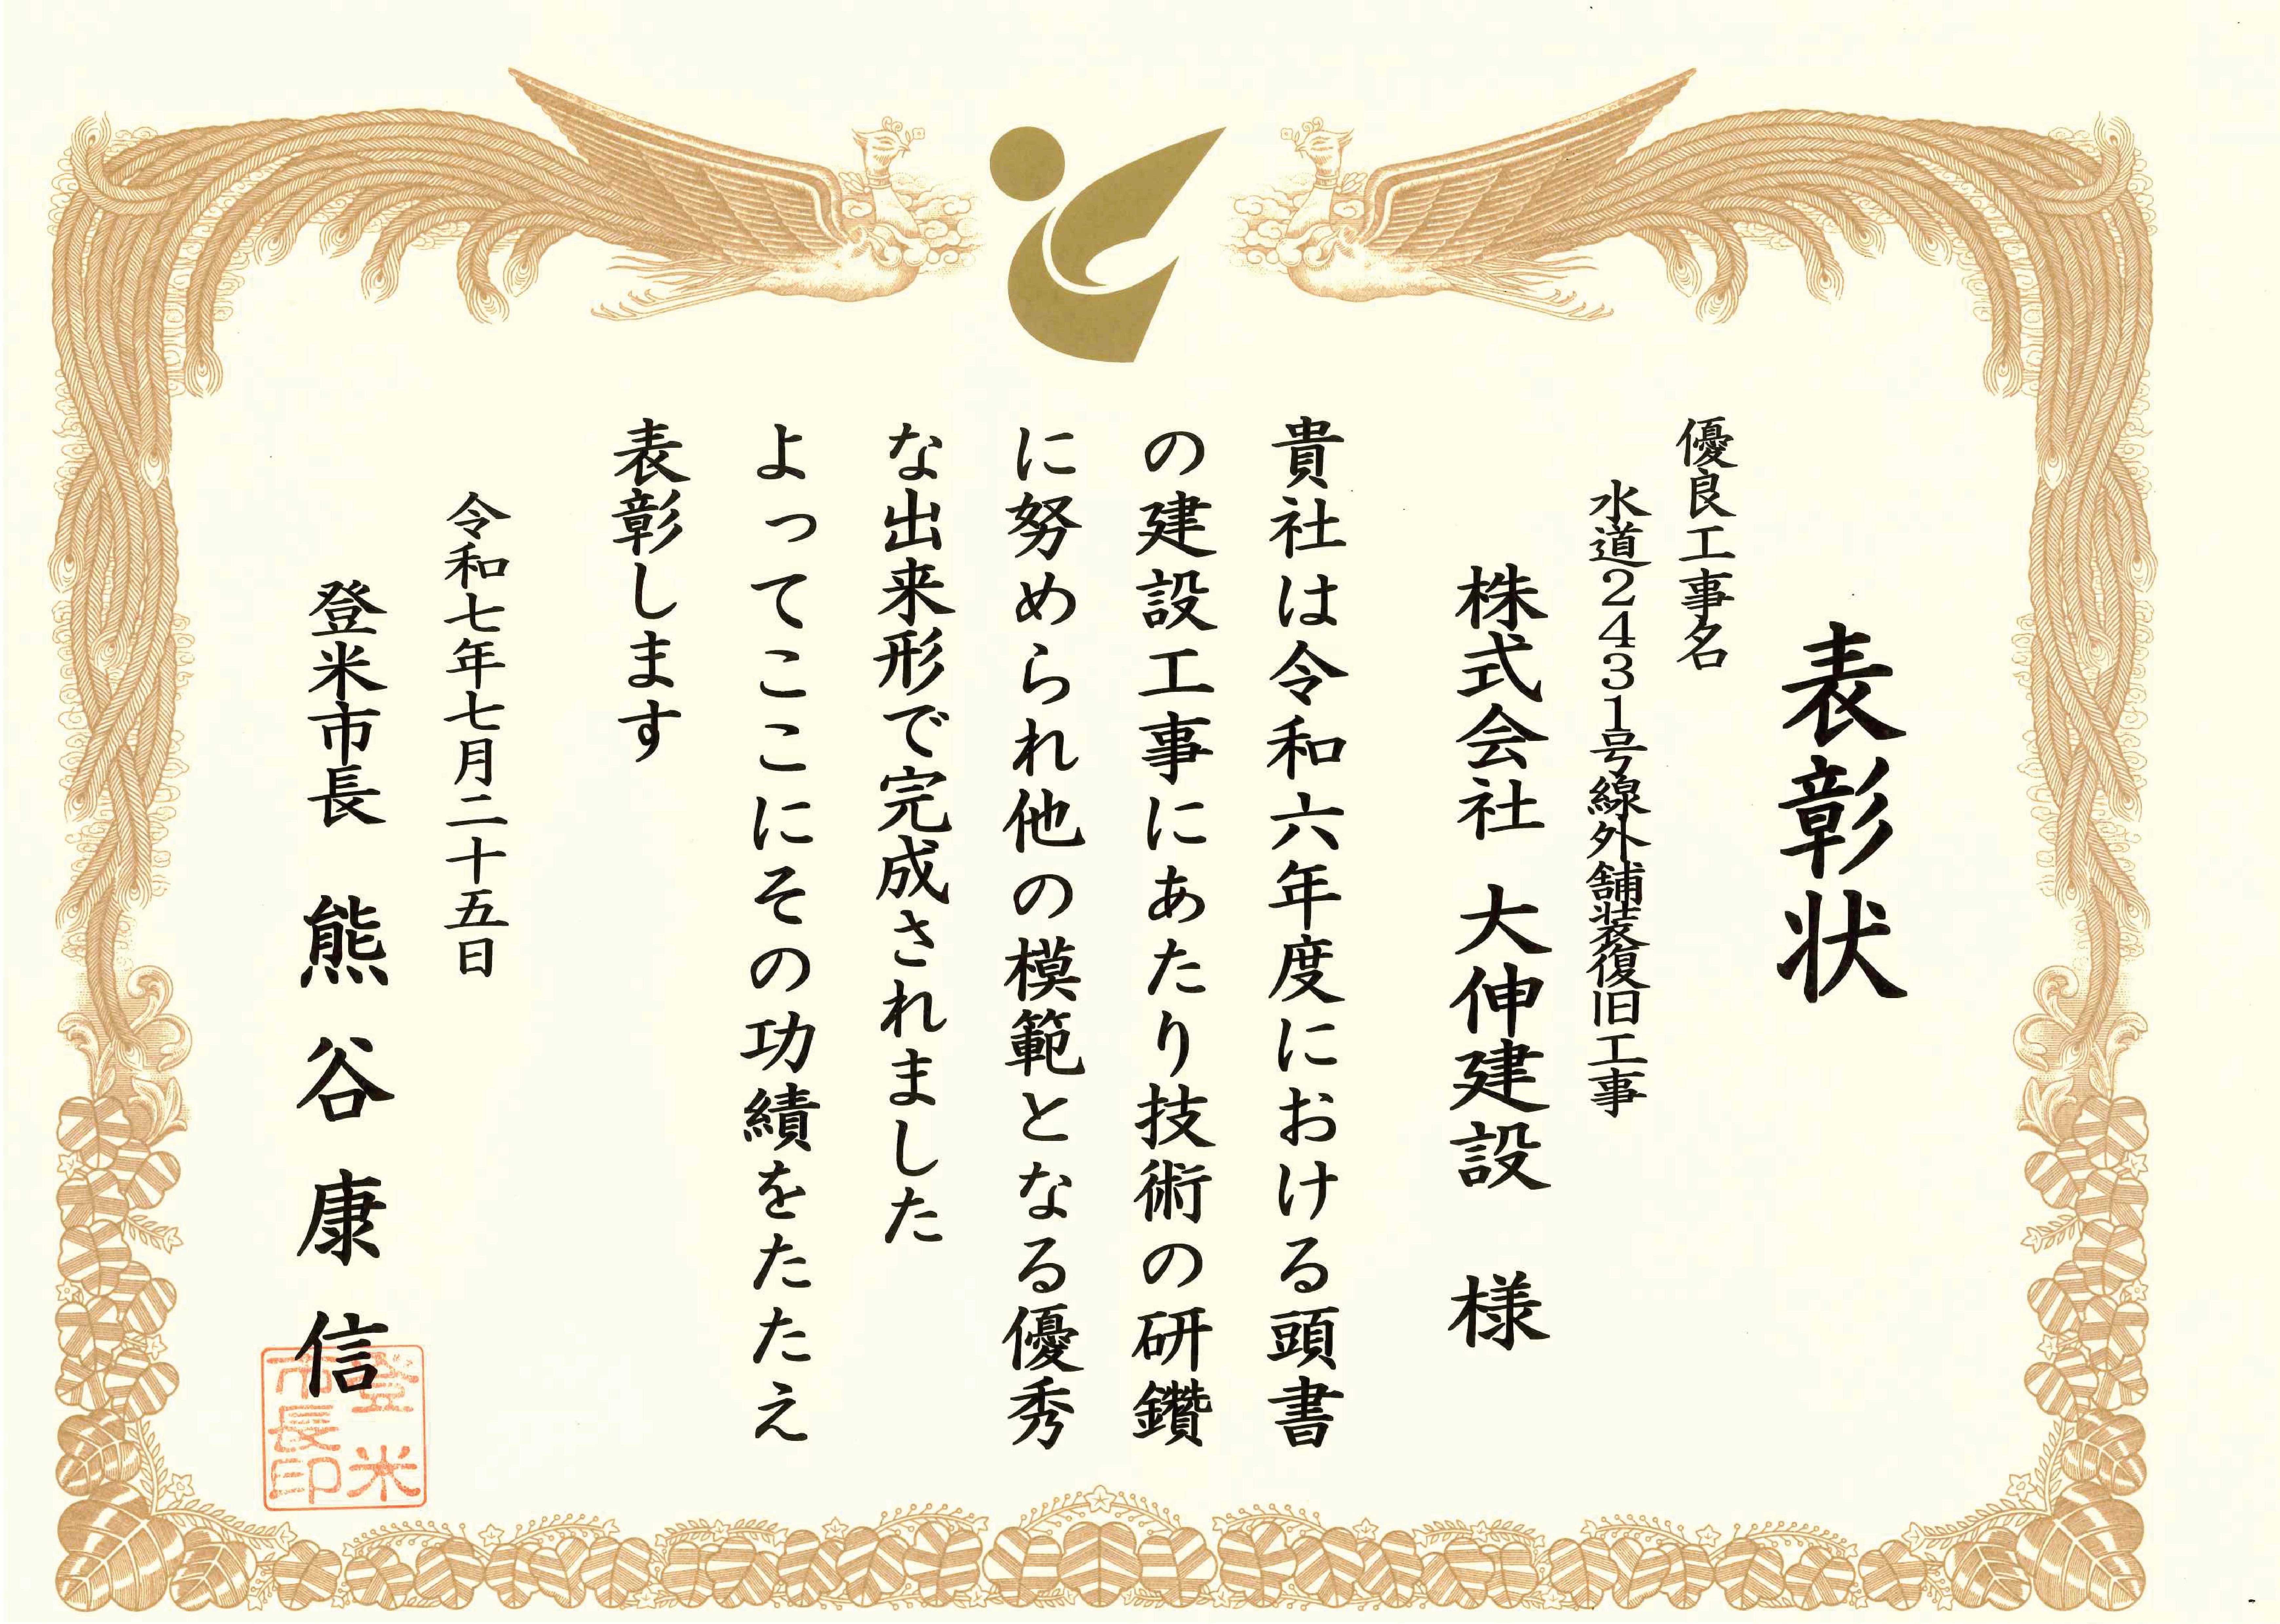 表彰状
優良工事名
水道2431号線外舗装復旧工事
株式会社 大伸建設 様
貴社は令和六年度における頭書
の建設工事にあたり技術の研鑽
に努められ他の模範となる優秀
な出来形で完成されました
よってここにその功績をたたえ
表彰します
令和七年七月二十五日
登米市長 熊谷康信
登米
市長印